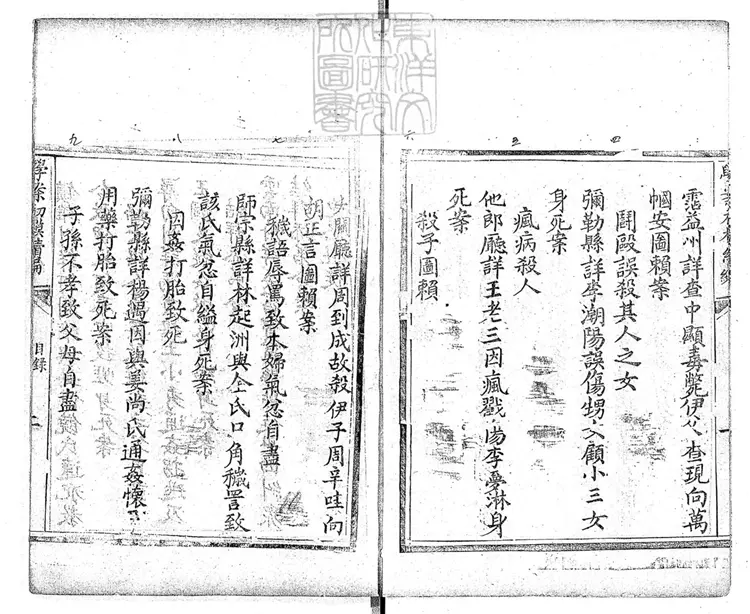 霑益州詳查中顯毒斃伊父查現向萬
幗安圖賴案
鬪毆誤殺其人之女
彌勒縣詳李潮陽誤傷甥女顧小三女
身死案
瘋病殺人
他郎廳詳王老三因瘋戳傷李夢淋身
死案
殺子圖賴
關廳詳周到成故殺伊子周辛哇向
胡正言圖賴案
穢語辱罵致本婦氣忿自盡
師宗縣詳林起洲與仝氏口角穢詈致
該氏氣忿自縊身死案
因姦打胎致死
彌勒縣詳楊遇因與姜尚氏通姦懷孕
用藥打胎致死案
子孫不孝致父母自盡
目錄
二
東洋文
化研究
所圖書
四
五
六
七
八
九